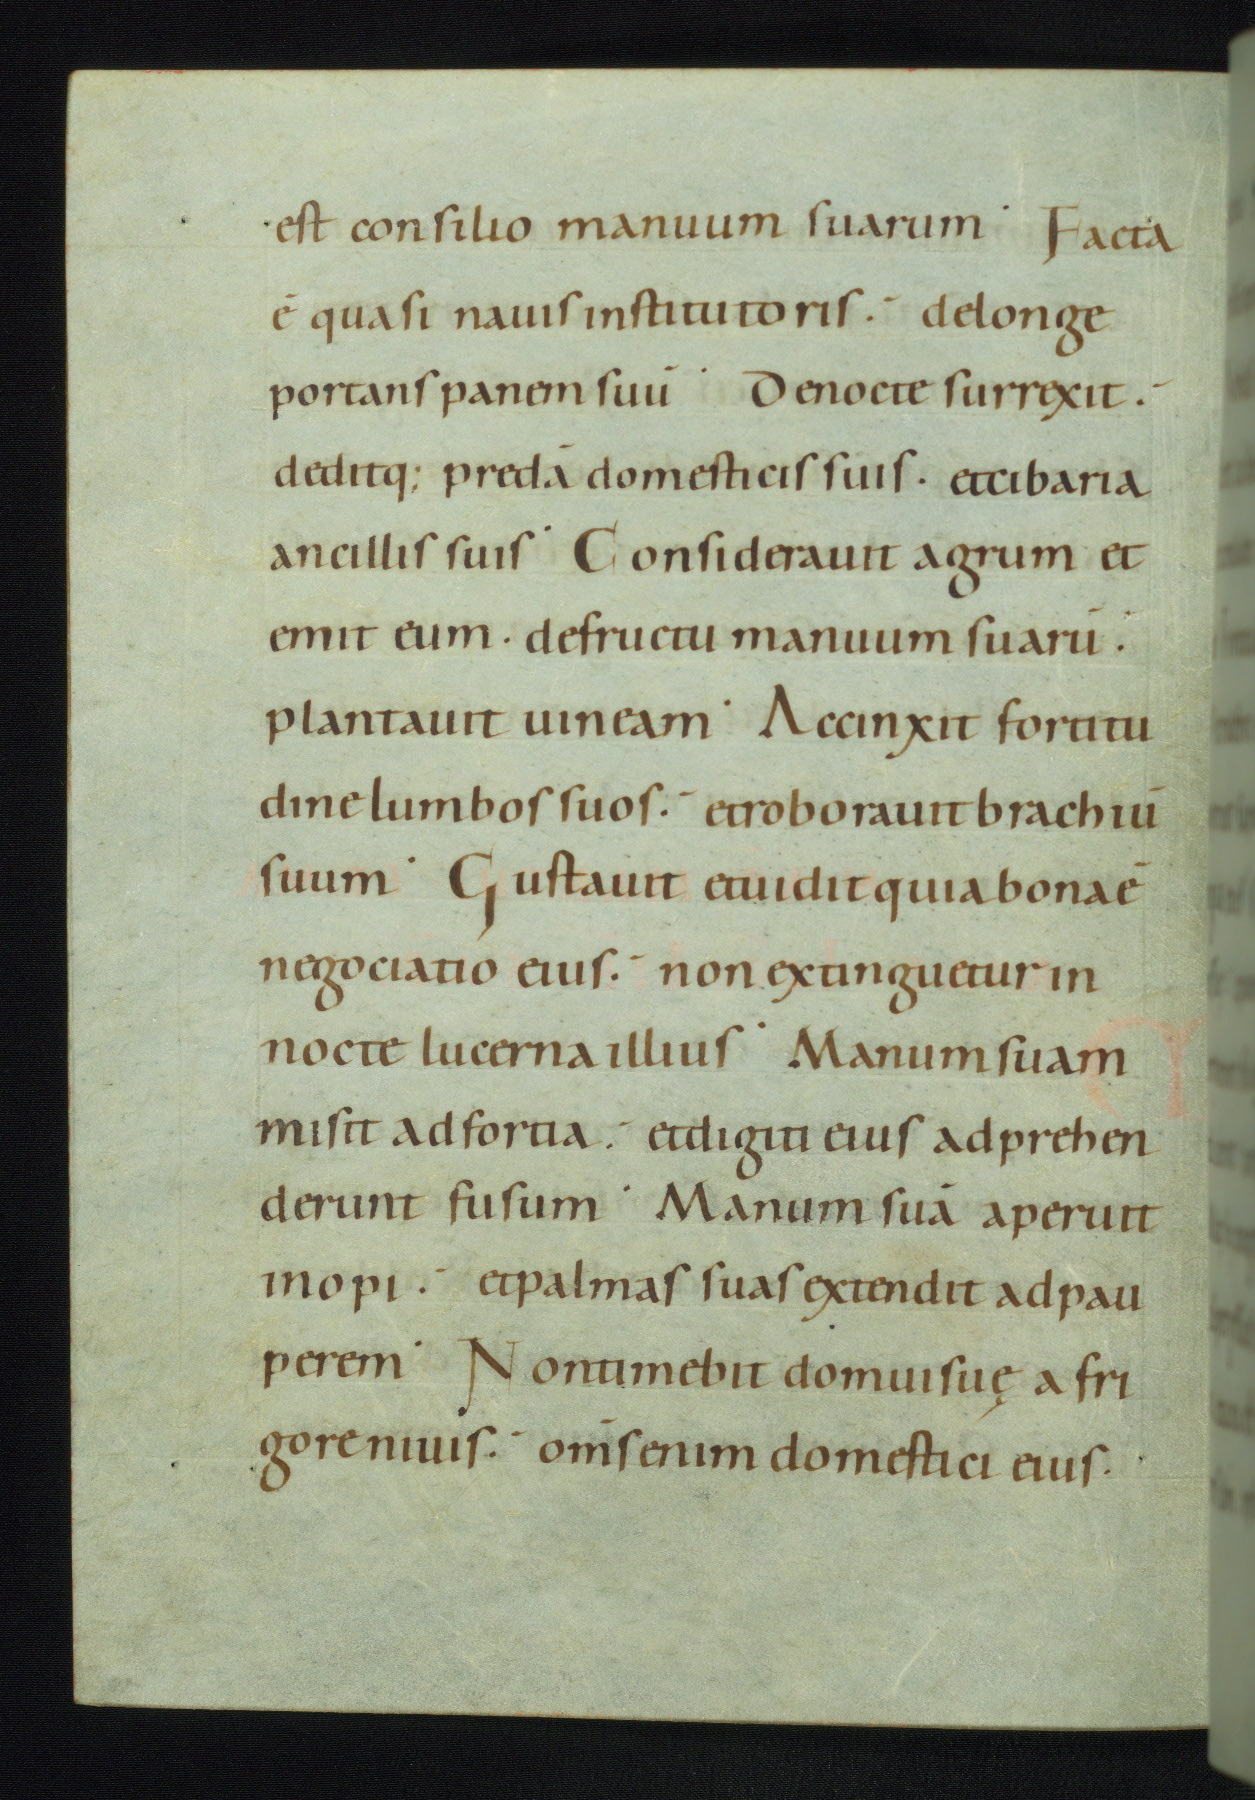 est consilio manuum suarum· Facta
ē quasi nauis institutoris. delonge
portans panem suū· Denocte surrexit.
deditq; predā domesticis suis. et cibaria
ancillis suis· Considerauit agrum et
emit eum. defructu manuum suarū.
plantauit uineam· Accinxit fortitu
dine lumbos suos. et roborauit brachiū
suum· Gustauit et uidit quia bona ē
negociatio eius. non extinguetur in
nocte lucerna illius· Manum suam
misit ad fortia. et digiti eius adprehen
derunt fusum· Manum suā aperuit
inopi. et palmas suas extendit ad pau
perem· Non timebit domui suę a fri
gore niuis. om̄s enim domestici eius.